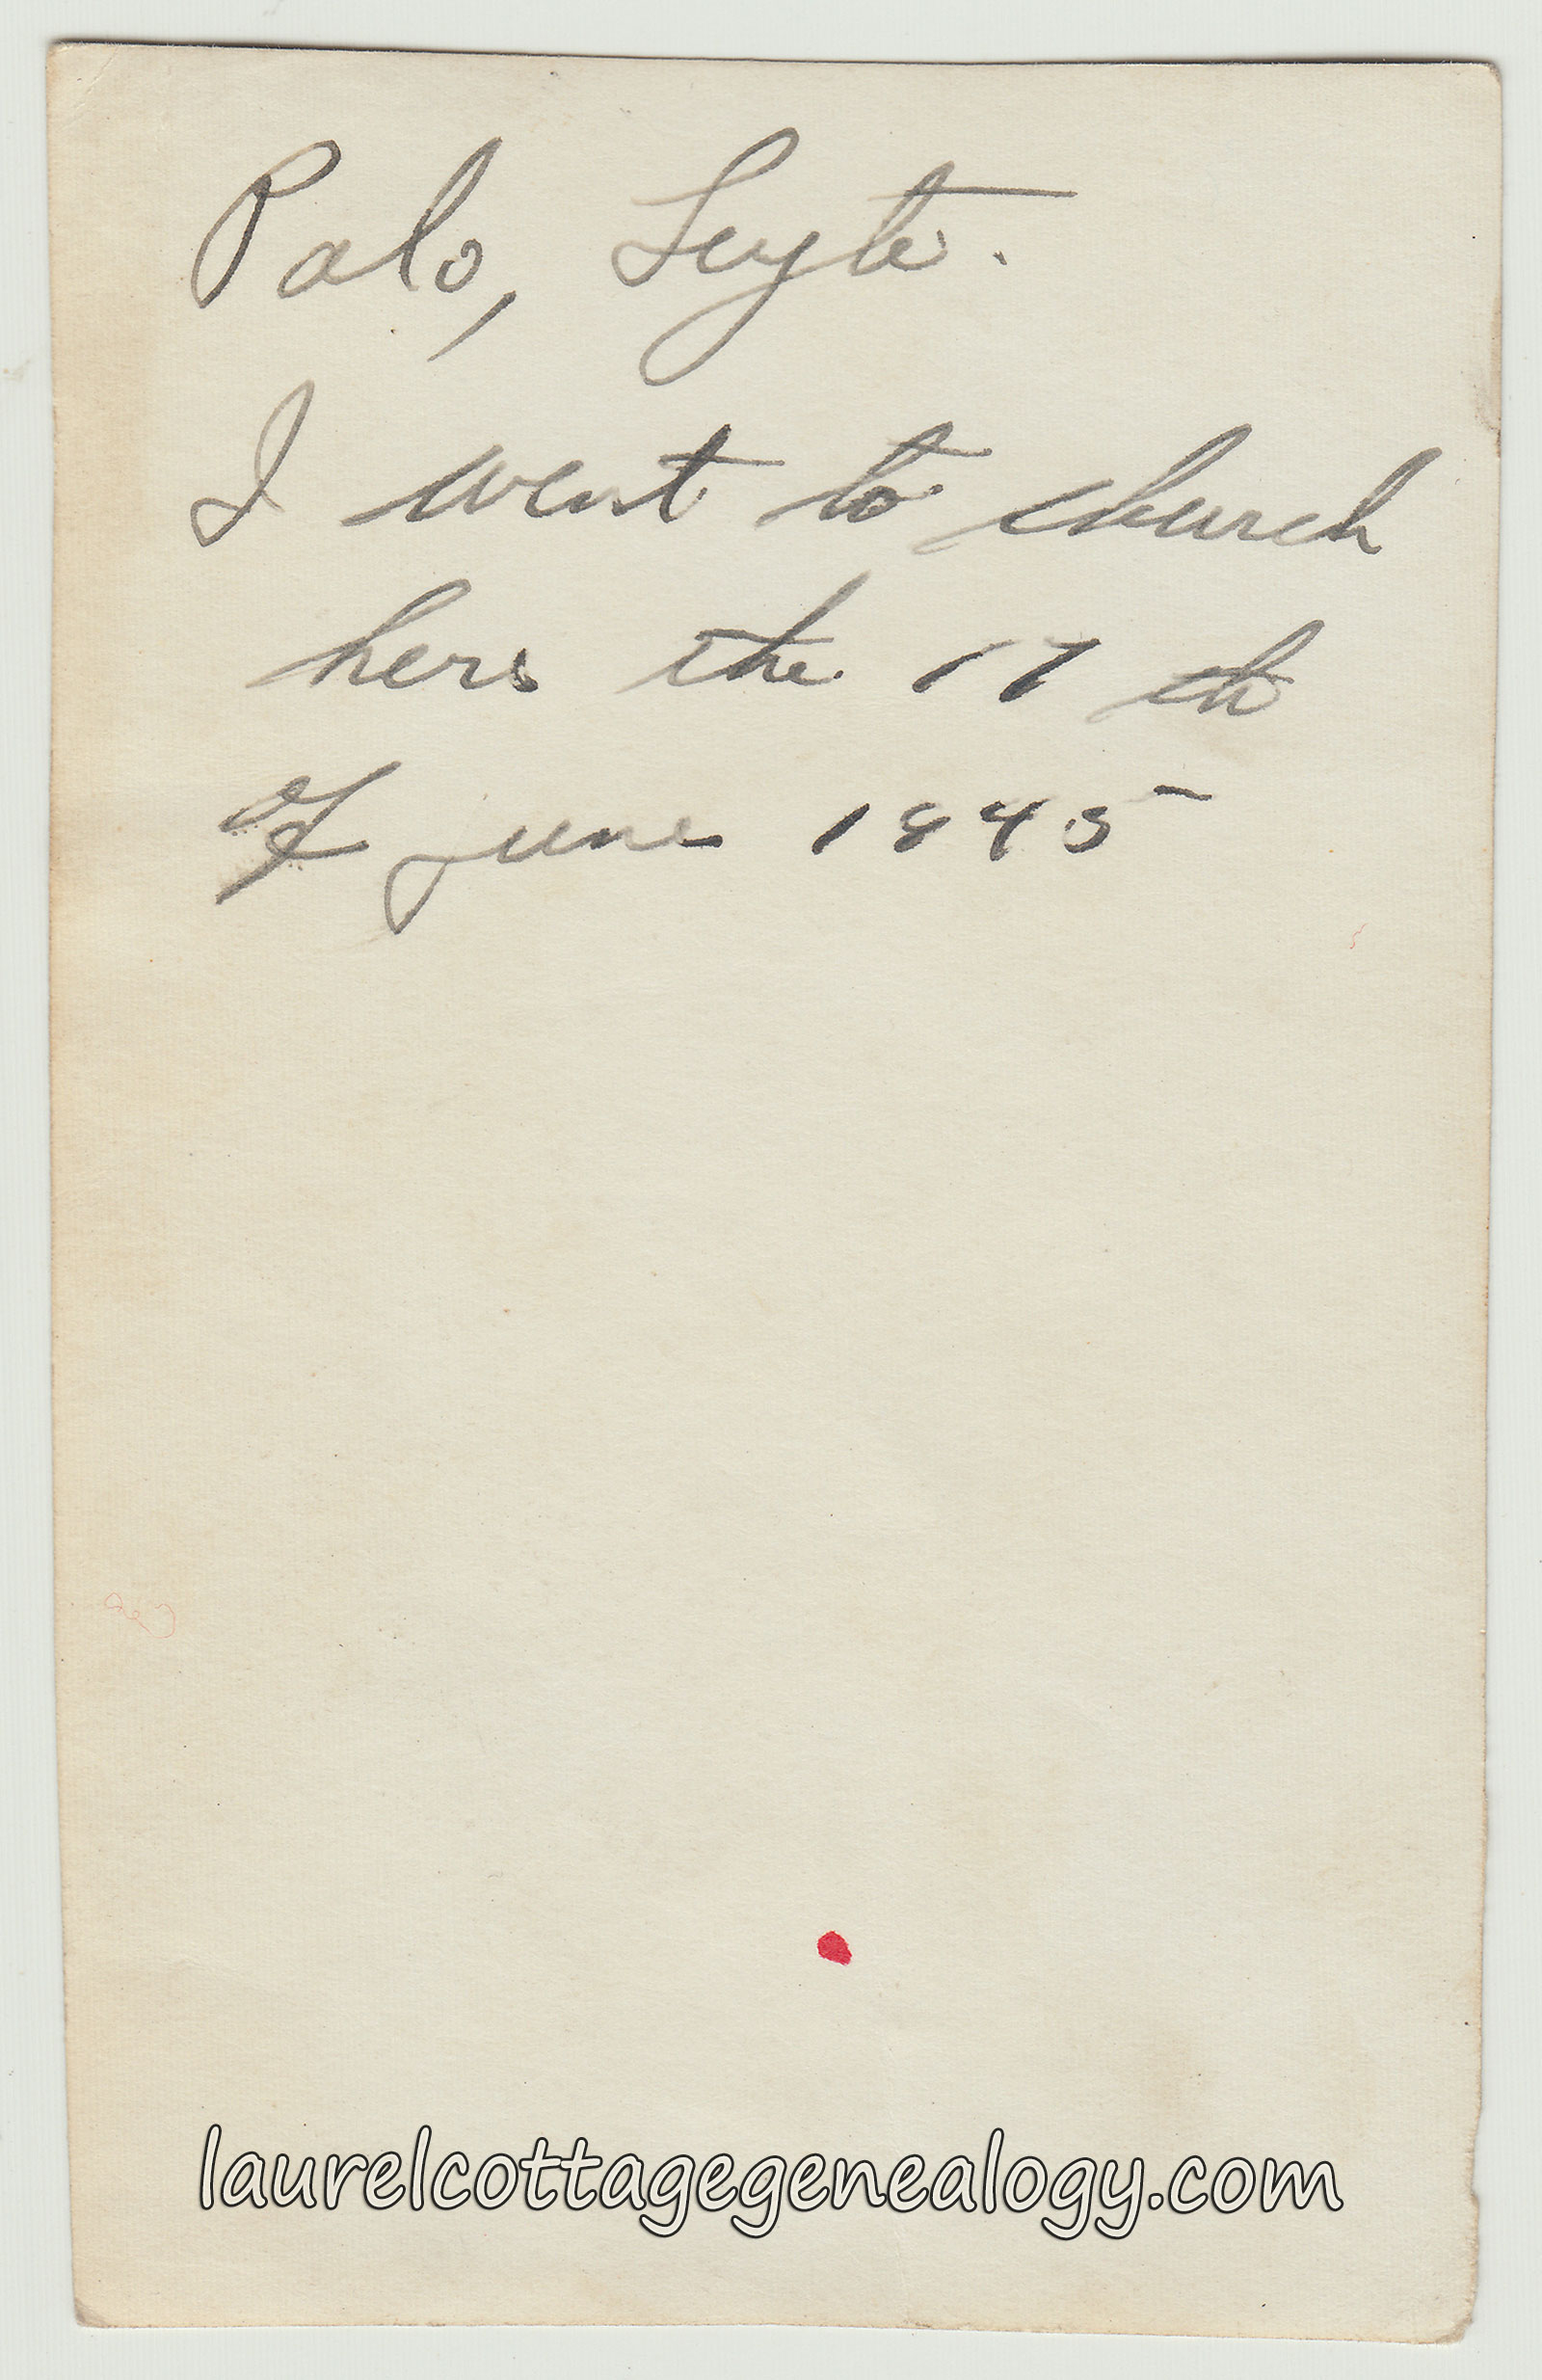 Palo, Leyte.
I went to church
here the 17 th
of june 1945
laurelcottagegenealogy.com